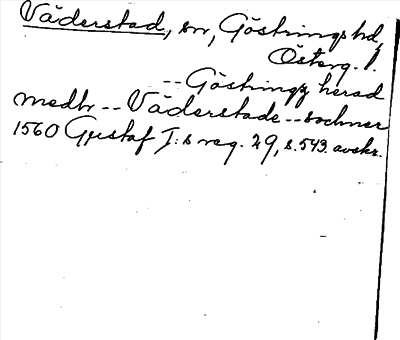 Väderstad, sn, Göstrings hd,
Österg. l.
-- Göstringz herad
medh -- Väderstade -- sochner
1560 Gustaf I:s reg. 29, s. 543. avskr.